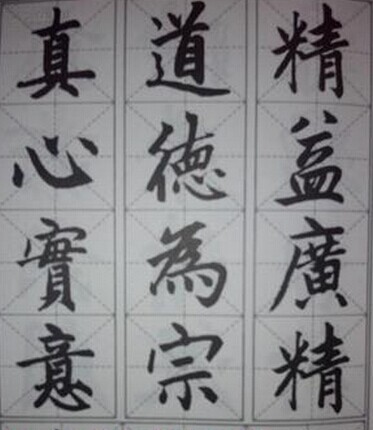 精益廣精
道德為宗
真心實意